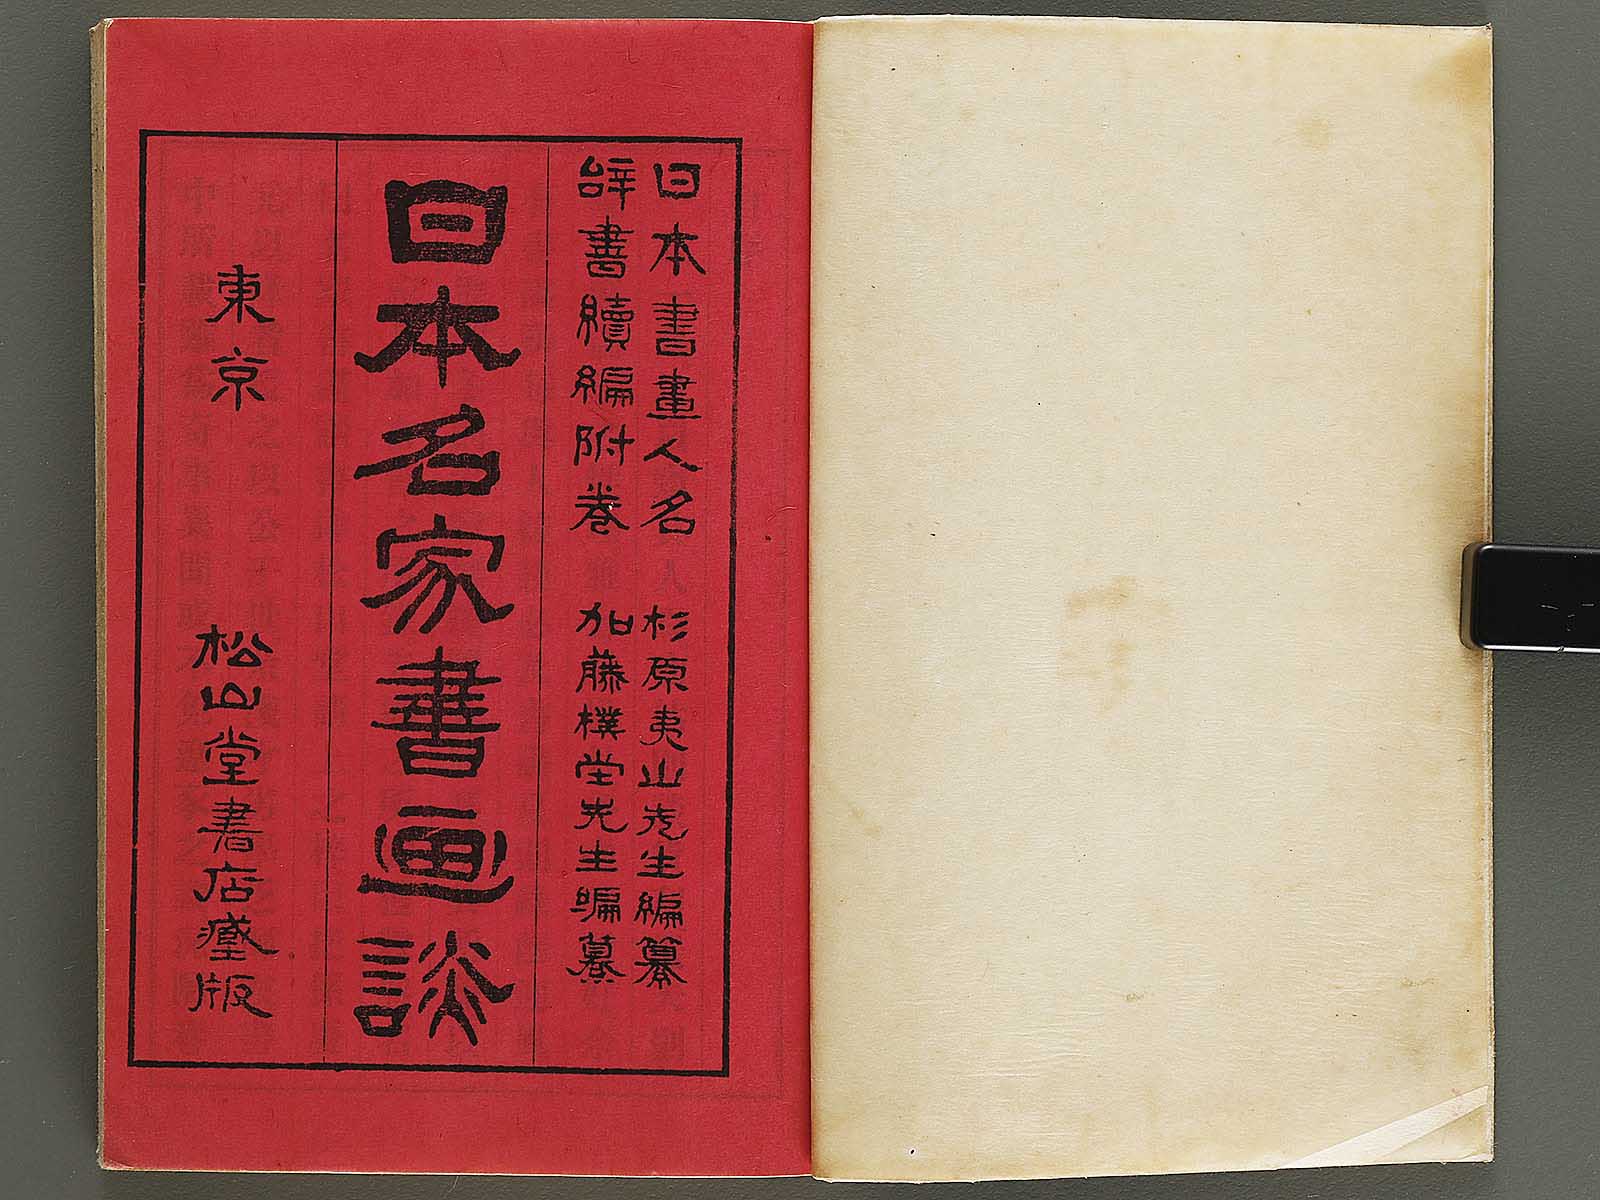 日本書畫人名
辞書續編附卷
杉原夷山先生編纂
加藤樸堂先生編纂
日本名家書画談
東京
松山堂書店藏版